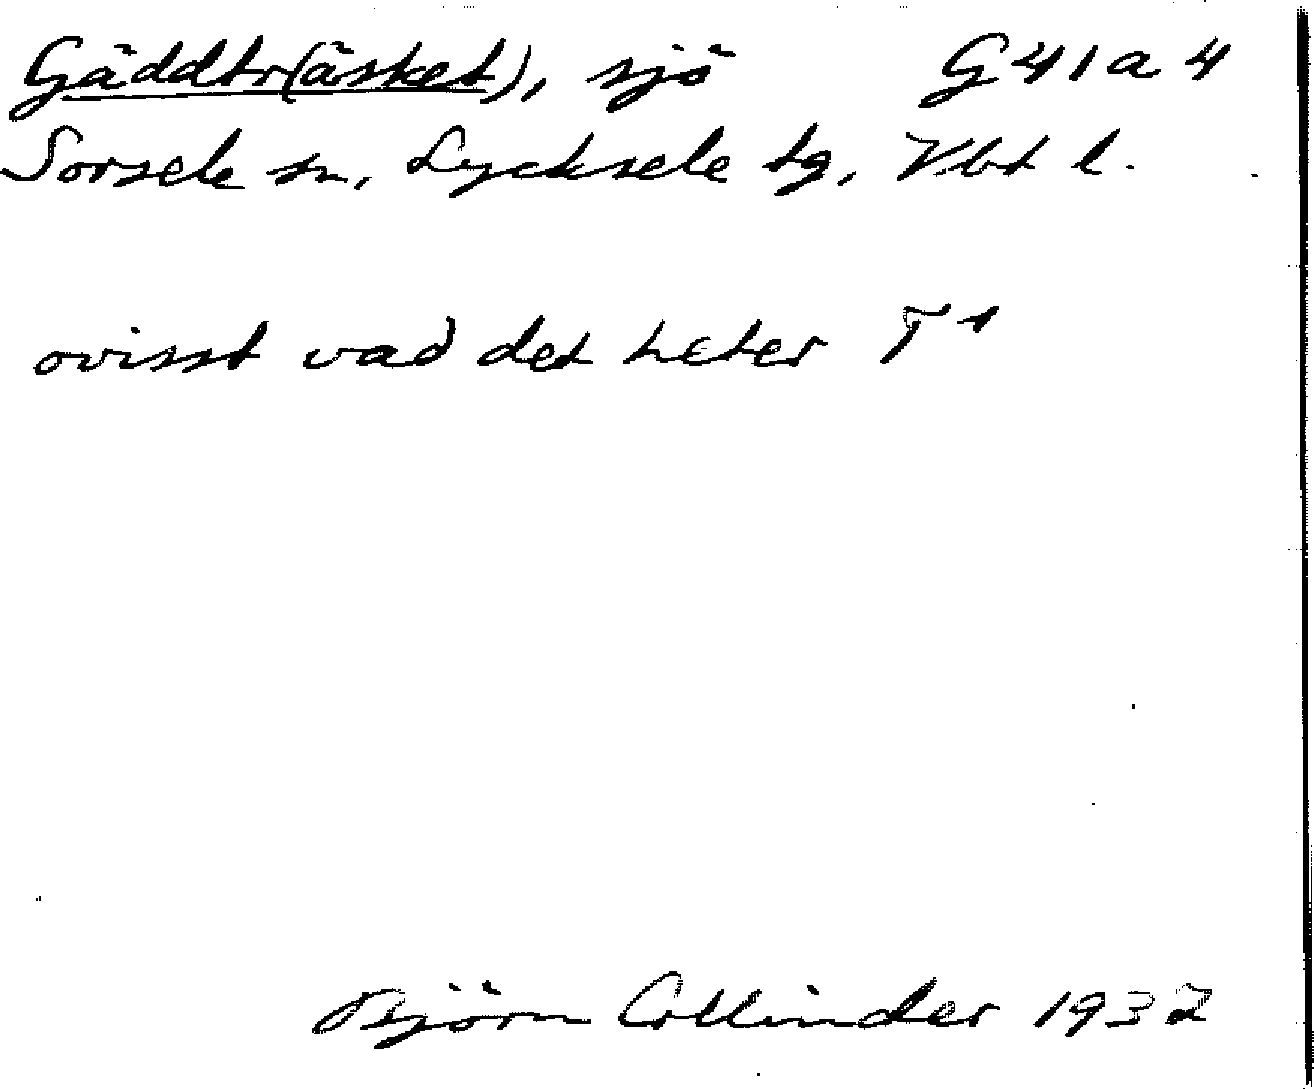 Gäddtr(äsket), sjö G41a4
Sorsele sn, Lycksele tg, Vbt l.
ovisst vad det heter T1
Björn Collinder 1932